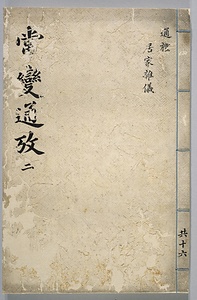 常變通攷 二
通禮
居家雜儀
共十六